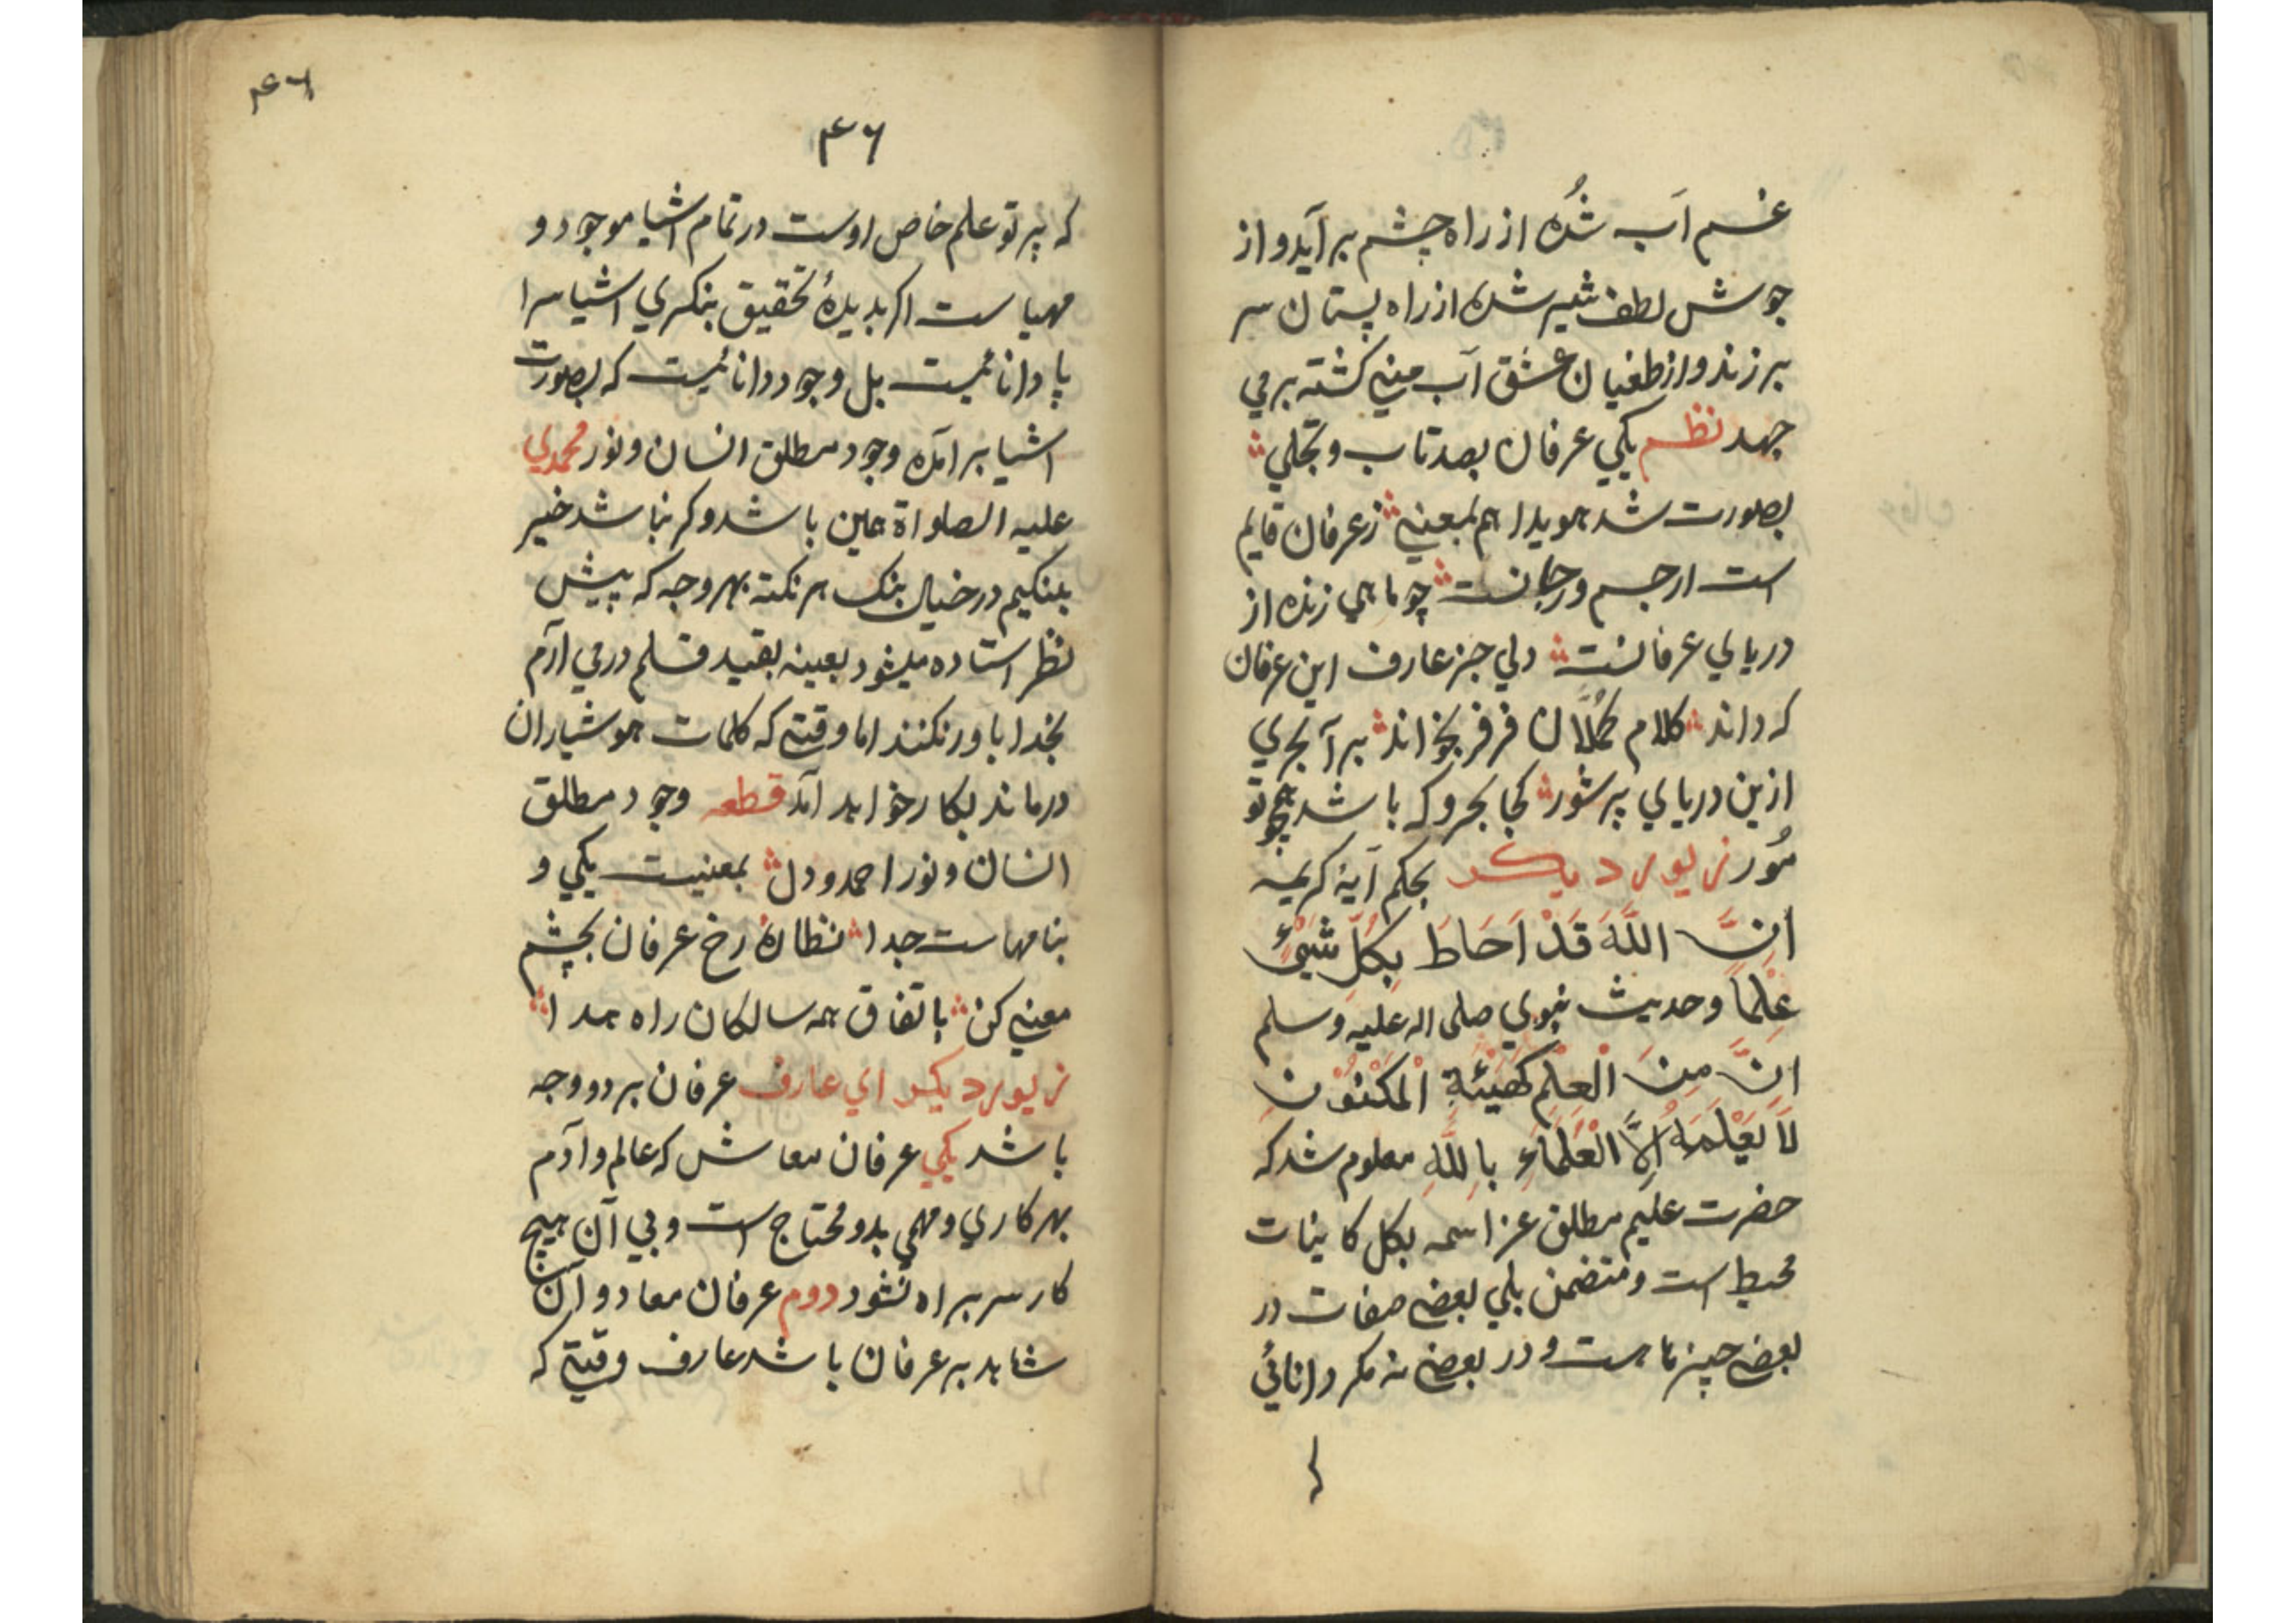 غم آب شده از راه چشم برآید و از
جوش لطف شیر شده از راه پستان سر
برزند و از طغیان عشق آب منی کشته برمي
جهد نظم یکي عرفان بصد تاب و تجلي
بصورت شد هویدا هم بمعنی ز عرفان قایم
است ار جسم ور جانست چو ماهي زنده از
دریاي عرفانست ولي جز عارف این عرفان
که داند کلام کملان فرفر بخواند برآ بحري
ازین دریاي پر شور کجا بحر و که باشد همچو تو
مُور زیور دیکر بحکم آیهٔ کریمه
اِنَّ اللّٰهَ قَدْ اَحَاطَ بِکُلِّ شَیْئٍ
عِلْماً و حدیث نبوي صلی اله علیه وسلم
اِنَّ مِنَ الْعِلْمِ کَهَیْئَةِ الْمَکْنُوْنِ
لَا یَعْلَمَهُ اِلَّا الْعُلَمَاءِ بِاللّٰهِ معلوم شد که
حضرت علیم مطلق عز اسمه بکل کاینات
محیط است و متضمن بلي بعضی صفات در
بعضی چیزهاست و در بعضی نه مکر دانائي
۴۶
۴۶
که پرتو علم خاص اوست در تمام اشیا موجود و
مهیاست اکر بدیدهٔ تحقیق بنکري اشیا سرا
پا دانائیست بل وجود دانائیست که بصورت
اشیا برآمده وجود مطلق انسان و نور محمدي
علیه الصلواة همین باشد وکر نباشد خیر
بلنکیم در خیال بنک هر نکته بهر وجه که پیش
نظر استاده میشود بعینه بقید قلم درمي آرم
بخدا باور نکنند اما وقتی که کلمات هوشیاران
درماند بکار خواهد آمد قطعه وجود مطلق
انسان و نور احمد و دل بمعنیست یکي و
بنامهاست جدا نظارهٔ رخ عرفان بچشم
معنی کن باتفاق همه سالکان راه هدا
زیور دیکر اي عارف عرفان بر دو وجه
باشد یکي عرفان معاش که عالم و آدم
بهر کاري و مهمي بدو محتاج است و بي آن هیچ
کار سربراه نشود دوم عرفان معاد و آن
شاهد بر عرفان باشد عارف وقتی که